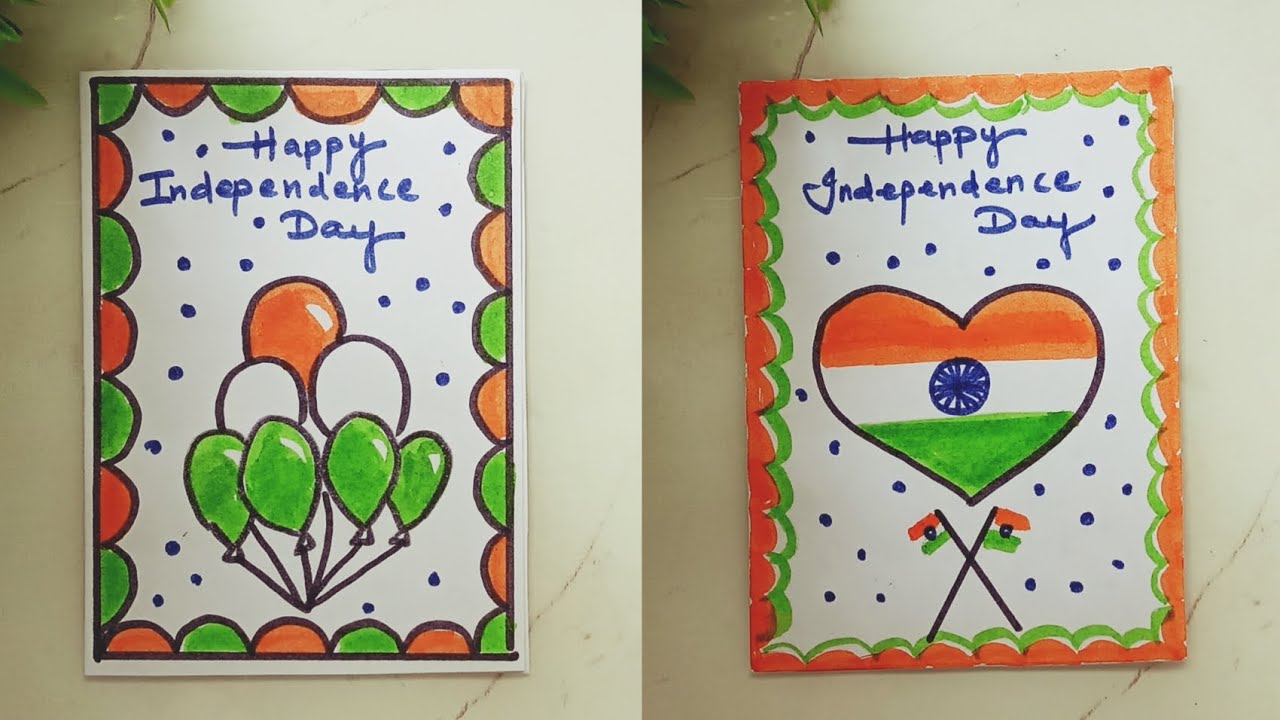 Happy
Independence
Day
Happy
Independence
Day